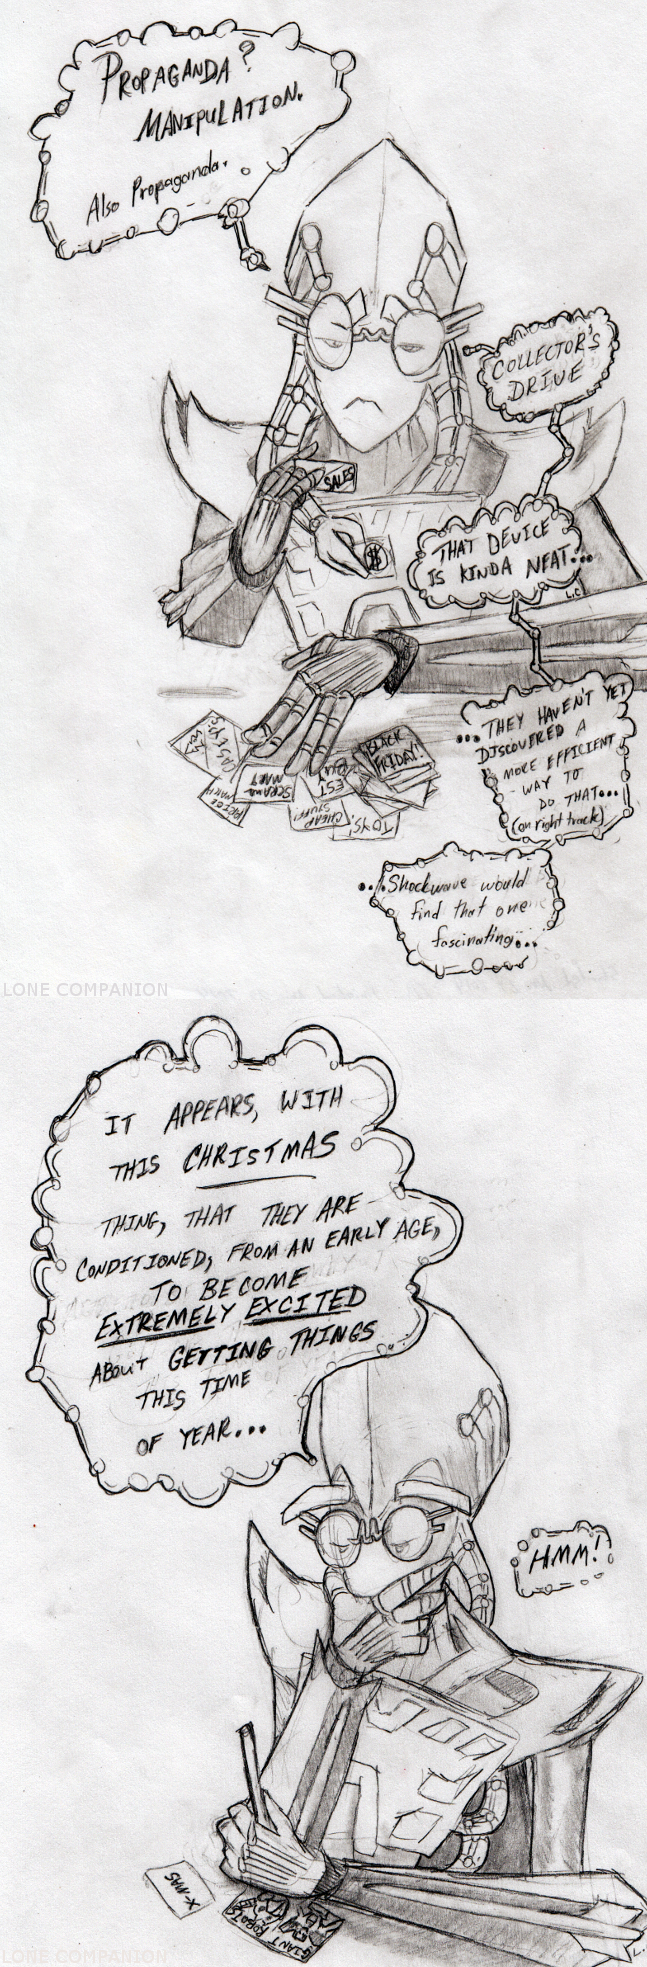 PROPAGANDA?
MANIPULATION.
Also Propaganda.
COLLECTOR'S
DRIVE
SALES
THAT DEVICE
IS KINDA NEAT...
$
L.C
...THEY HAVEN'T YET
DISCOVERED A
MORE EFFICIENT
WAY TO
DO THAT...
(on right track)
BLACK
FRIDAY!
CHEAP
STUFF!
TOYS!
...Shockwave would
find that one
fascinating...
LONE COMPANION
IT APPEARS, WITH
THIS CHRISTMAS
THING, THAT THEY ARE
CONDITIONED, FROM AN EARLY AGE,
TO BECOME
EXTREMELY EXCITED
ABOUT GETTING THINGS
THIS TIME
OF YEAR...
HMM!
X-MAS
GIANT
ROBOTS
LONE COMPANION